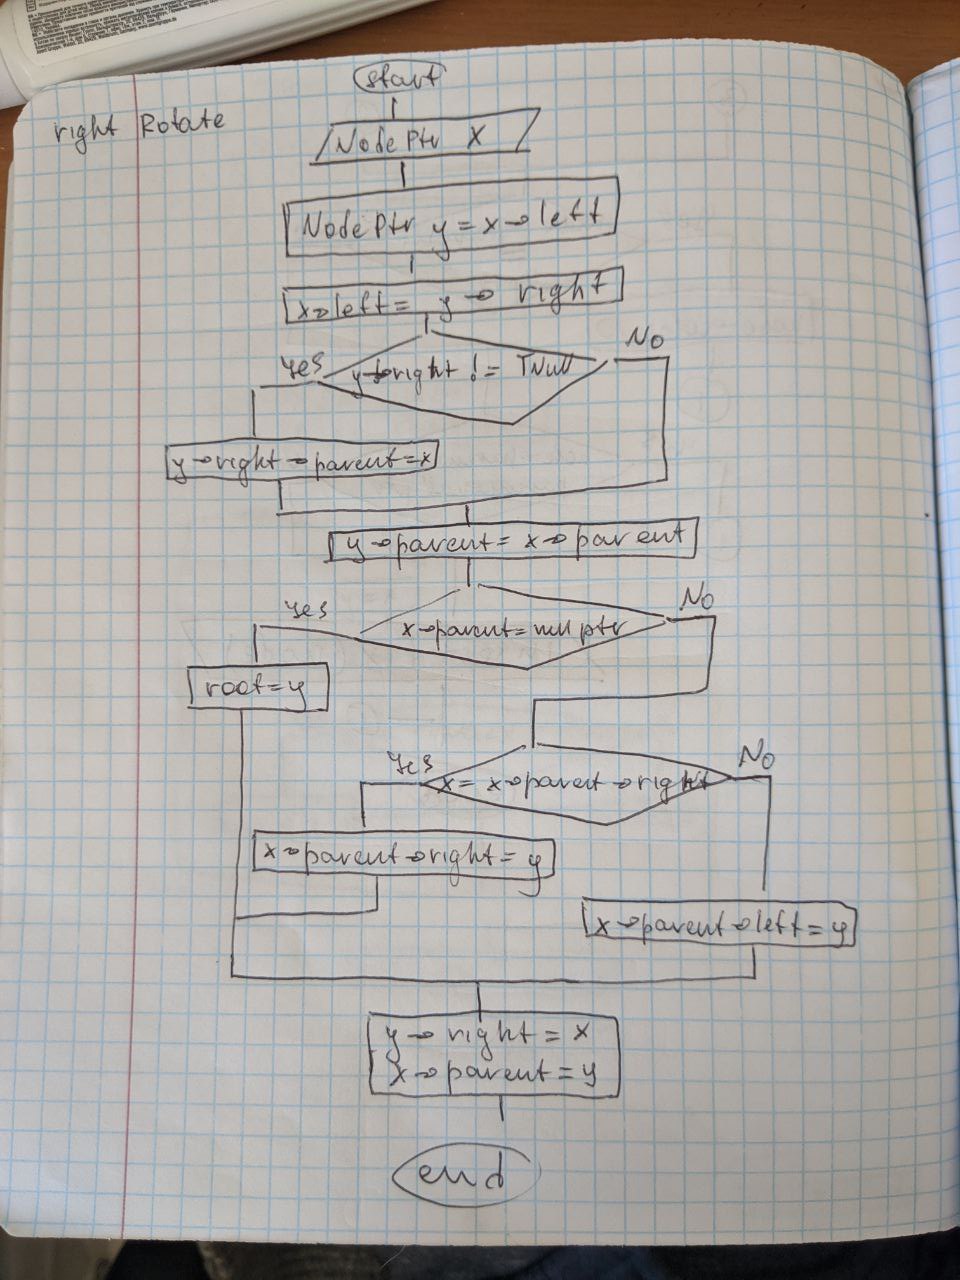 start
right Rotate
NodePtr X
NodePtr y = x→left
x→left = y→ right
No
yes
y→right != TNull
y→right→parent=x
y→parent= x→parent
yes
No
x→parent=nullptr
root=y
yes
No
x= x→parent→right
x→parent→right= y
x→parent→left=y
y→ right = x
x→parent = y
end